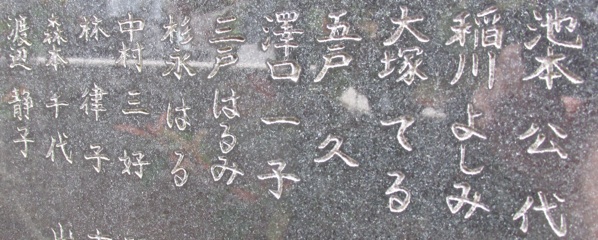 池本 公代
稲川 よしみ
大塚 てる
五戸 久
澤口 一子
三戸 はるみ
杉永 はる
中村 三好
林 律子
森本 千代
渡辺 静子